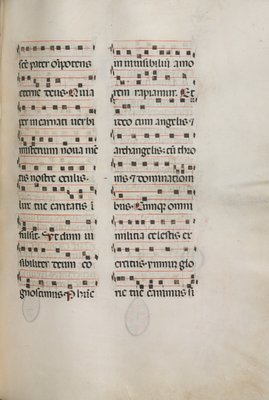 sce pater omipotens
eterne deus. Quia
per incarnati uerbi
misterium noua men
tis nostre oculis
lux tue claritatis i
fulsit. Ut dum ui
sibiliter deum co
gnoscimus. Per hunc
in inuisibilium amo
rem rapiamur. Et
ideo cum angelis &
archangelis. cu thro
nis & dominationi
bus. Cumq; omni
militia celestis ex
ercitus. ymnum glo
rie tue canimus si